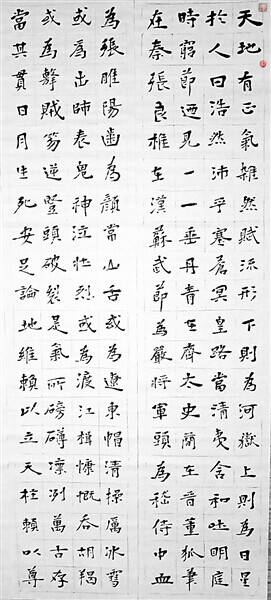 天地有正氣雜然賦流形下則為河嶽上則為日星
於人曰浩然沛乎塞蒼冥皇路當清夷含和吐明庭
時窮節迺見一一垂丹青在齊太史簡在晉董狐筆
在秦張良椎在漢蘇武節為嚴將軍頭為嵇侍中血
為張睢陽齒為顏常山舌或為遼東帽清操厲冰雪
或為出師表鬼神泣壯烈或為渡江楫慷慨吞胡羯
或為擊賊笏逆豎頭破裂是氣所磅礡凜冽萬古存
當其貫日月生死安足論地維賴以立天柱賴以尊